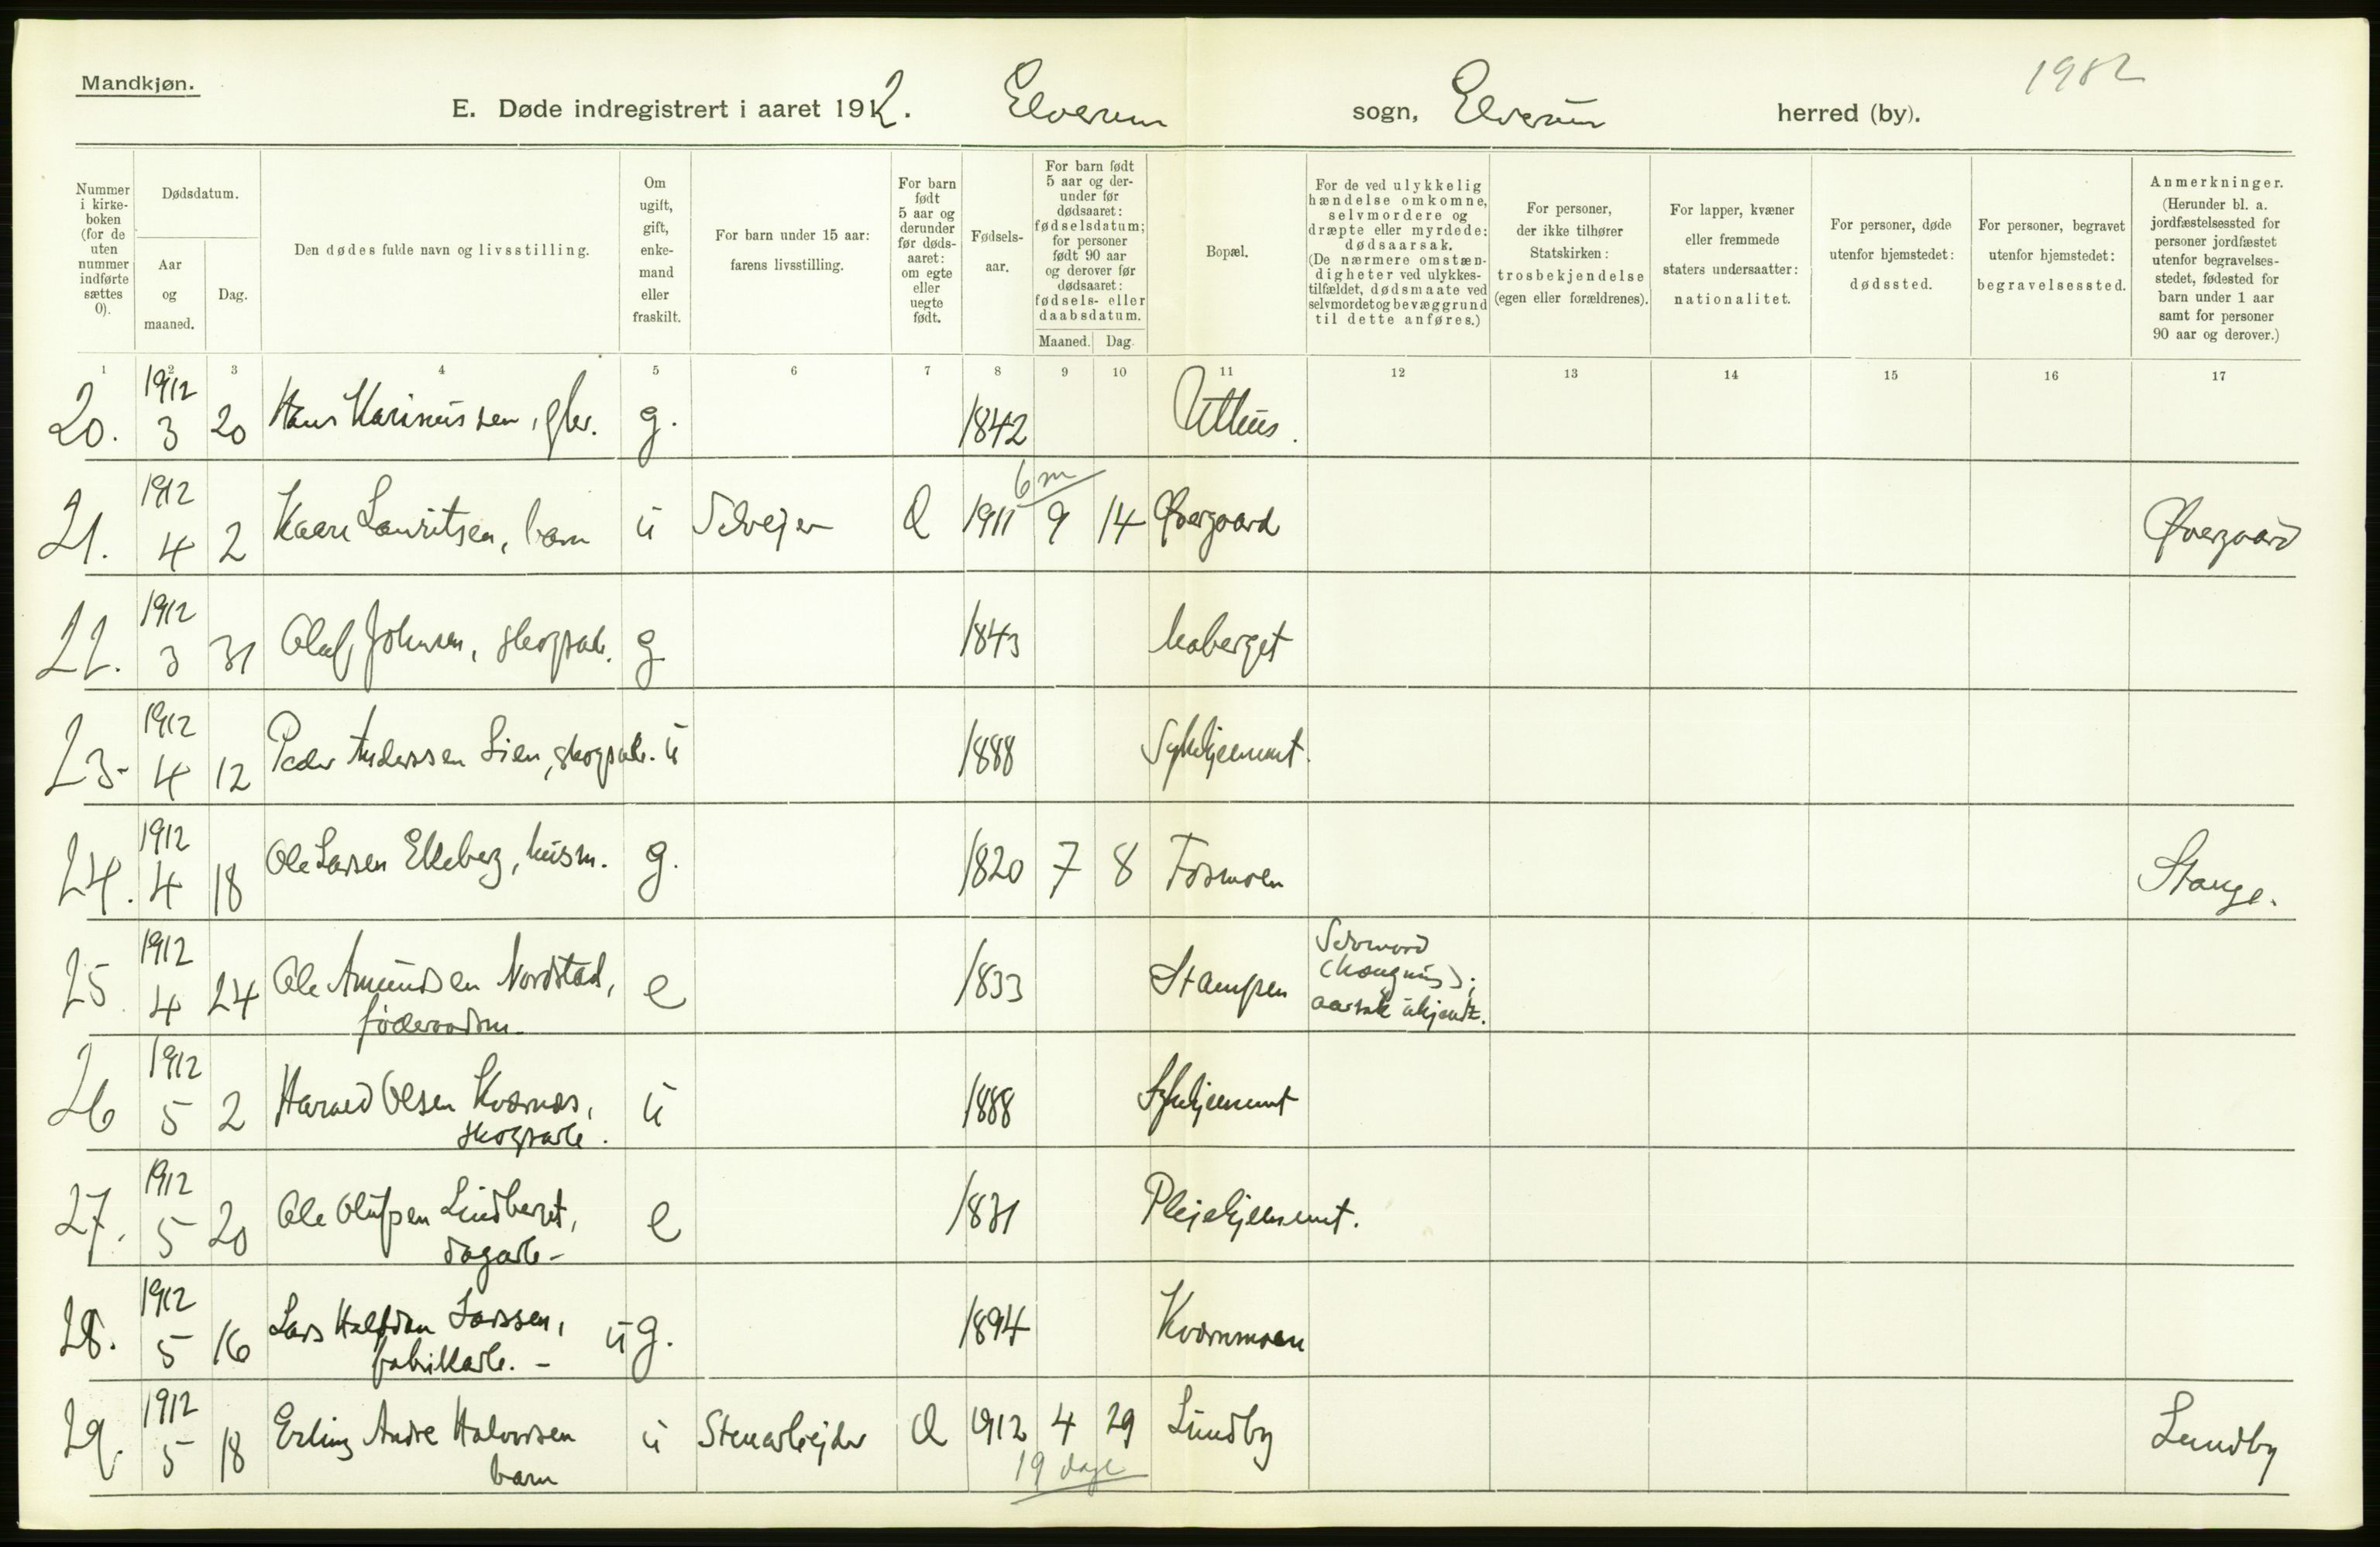 Mandkjøn.
1982
E. Døde indregistrert i aaret 1912. Elverum sogn, Elverum herred (by).
Nummer i kirke-boken (for de uten nummer indførte sættes 0).
Dødsdatum.
Aar og maaned.
Dag.
Den dødes fulde navn og livsstilling.
Om ugift, gift, enke-mand eller fraskilt.
For barn under 15 aar: farens livsstilling.
For barn født 5 aar og derunder før døds-aaret: om egte eller uegte født.
Fødsels-aar.
For barn født 5 aar og der-under før dødsaaret: fødselsdatum; for personer født 90 aar og derover før dødsaaret: fødsels- eller daabsdatum.
Maaned. Dag.
Bopæl.
For de ved ulykkelig hændelse omkomne, selvmordere og dræpte eller myrdede: dødsaarsak. (De nærmere omstæn-digheter ved ulykkes-tilfældet, dødsmaate ved selvmordet og bevæggrund til dette anføres.)
For personer, der ikke tilhører Statskirken: trosbekjendelse (egen eller forældrenes).
For lapper, kvæner eller fremmede staters undersaatter: nationalitet.
For personer, døde utenfor hjemstedet: dødssted.
For personer, begravet utenfor hjemstedet: begravelsessted.
Anmerkninger. (Herunder bl. a. jordfæstelsessted for personer jordfæstet utenfor begravelses-stedet, fødested for barn under 1 aar samt for personer 90 aar og derover.)
1 2 3 4 5 6 7 8 9 10 11 12 13 14 15 16 17
20. 1912 3 20 Hans Karinussen, g. 1842 Uthus.
21. 1912 4 2 Kaare Lauritsen, barn u Selvejer 1911 9 14 Øvergaard Øvergaard
6 m
22. 1912 3 31 Oluf Johnsen, skogsarb. g 1843 Moberget
23. 1912 4 12 Peder Anderssen Lien, skogsarb. u 1888 Sykehjemmet.
24. 1912 4 18 Ole Larsen Ekeberg, husm. g. 1820 7 8 Fosmoen Stange.
25 1912 4 24 Ole Amundsen Nordstad, føderaadsm. e 1833 Stampen Selvmord (hængning); aarsak ukjendt.
26 1912 5 2 Harald Olsen Kværnæs, skogsarb. u 1888 Sykehjemmet
27. 1912 5 20 Ole Olufsen Lindberget, dagarb. e 1831 Plejehjemmet.
28. 1912 5 16 Lars Halfdan Larssen, fabrikkarb. - u g. 1894 Kværnmoen
29. 1912 5 18 Erling Andre Halvorsen barn u Stenarbejder 1912 4 29 Lundby Lundby
19 dage